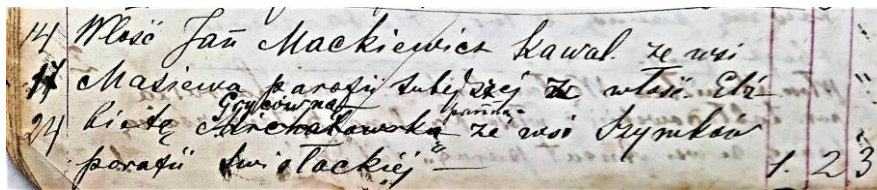 14 Włość Jan̄ Mackiewicz kawal. ze wsi
17 Masiewa parafii tutejszej z włość. Elż
Grycówną panną
24 bietą Michałowską ze wsi Szymków
parafii Swisłockiéj — 1. 2 3